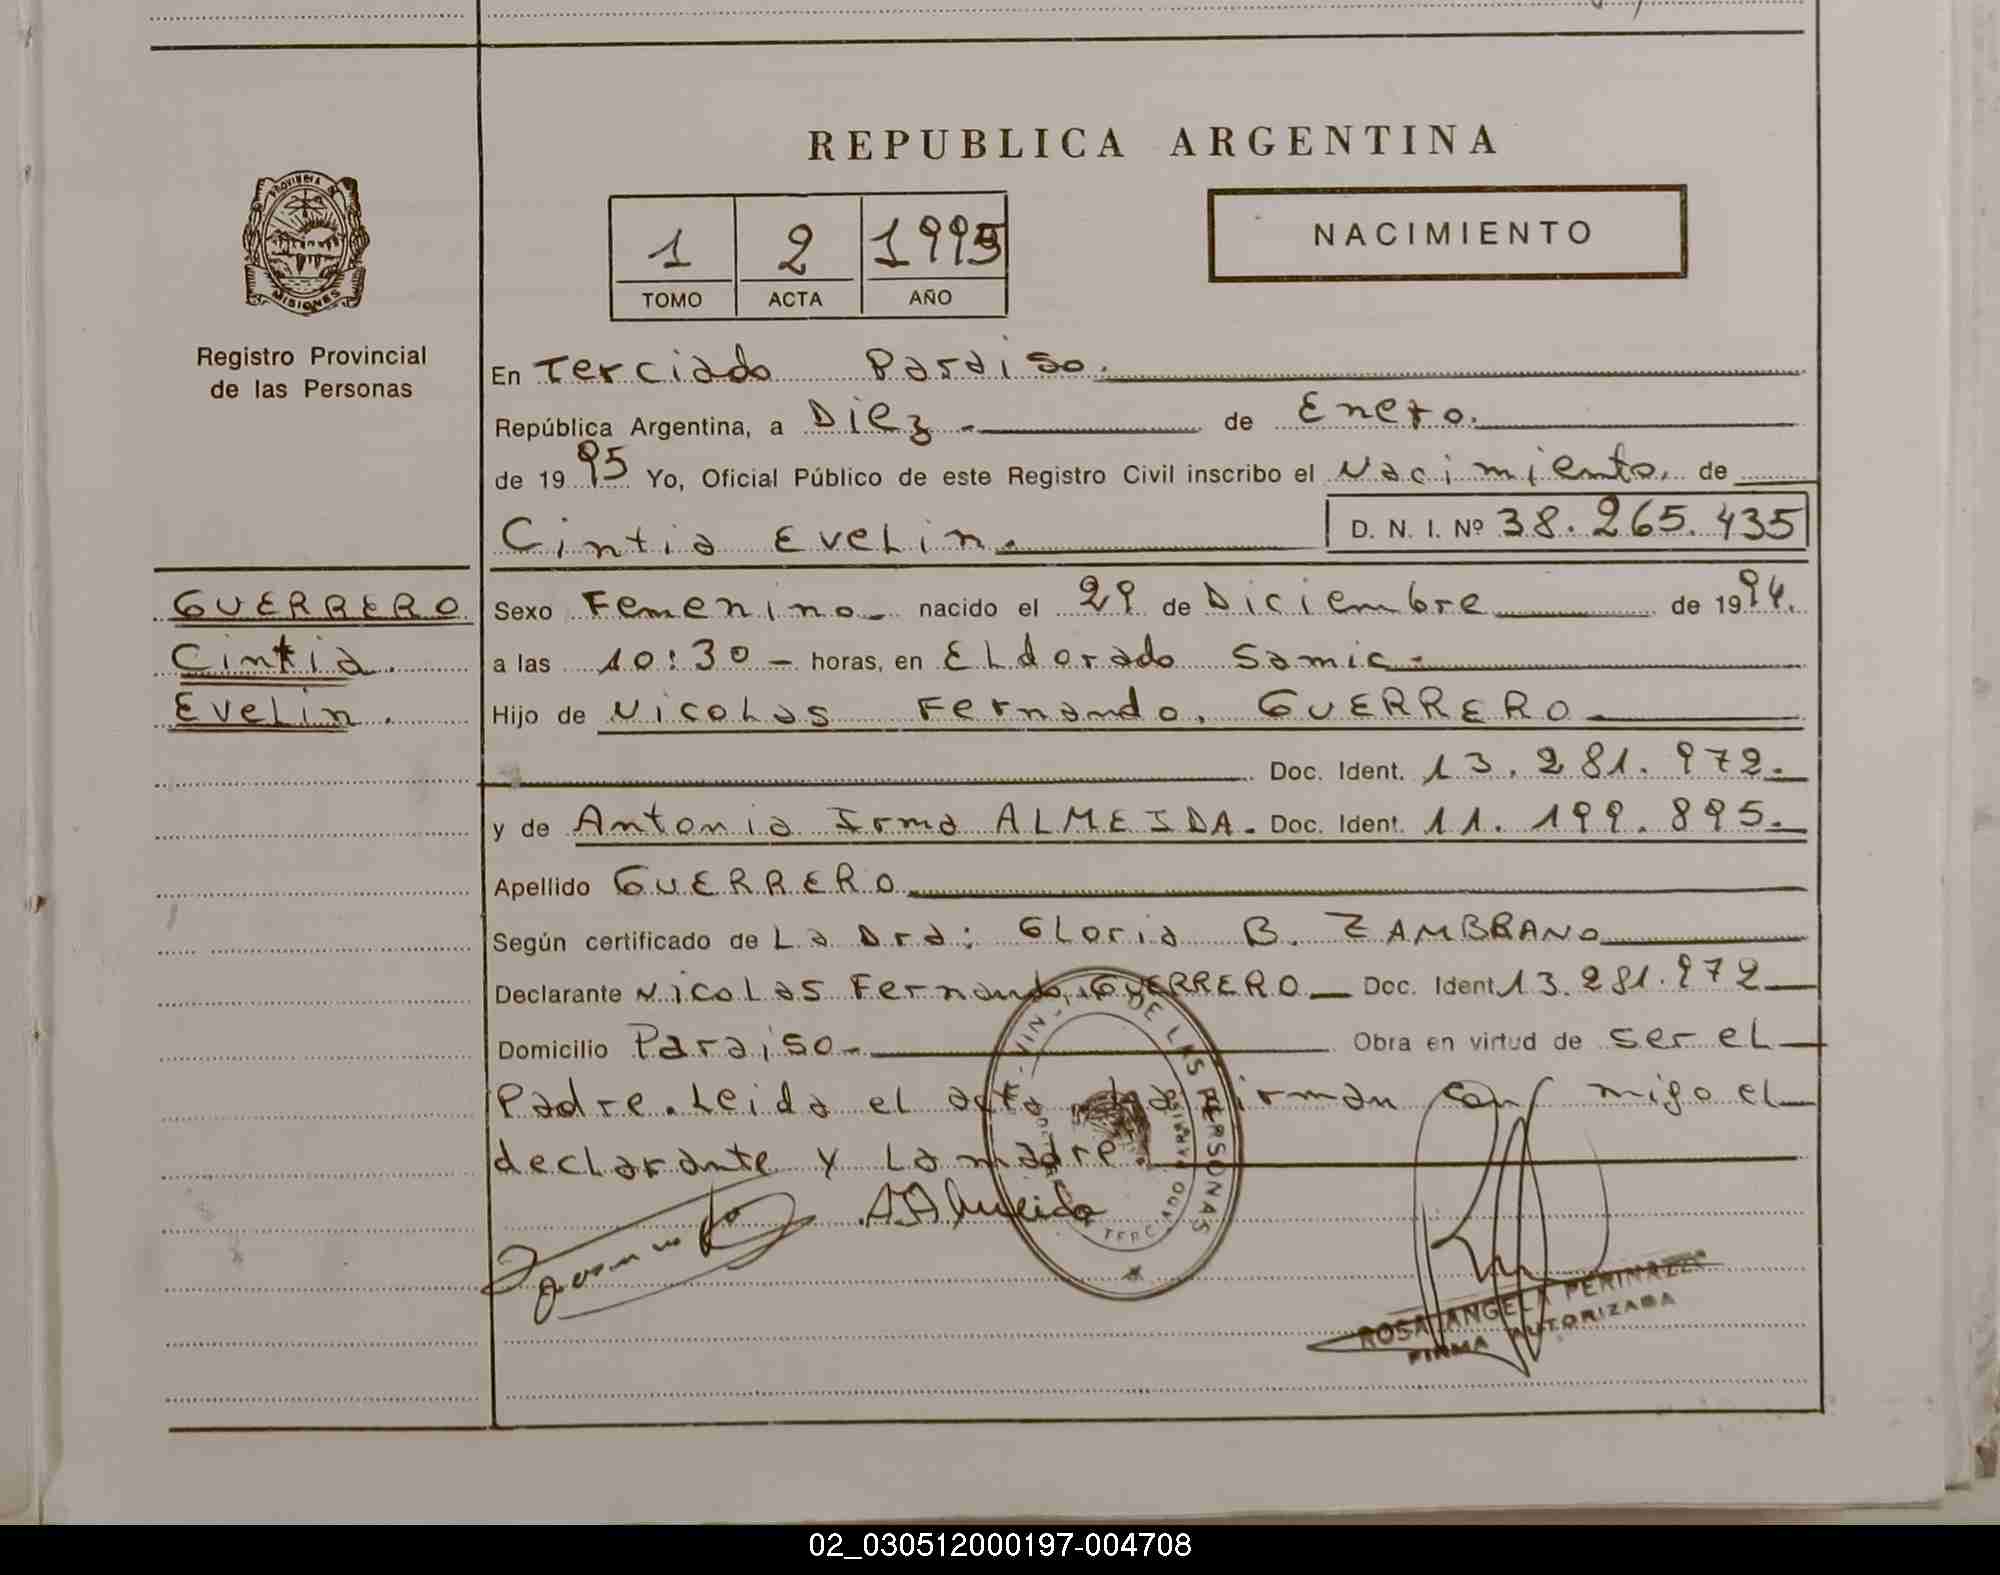 REPUBLICA ARGENTINA
PROVINCIA DE
MISIONES
Registro Provincial
de las Personas
1 2 1995
TOMO ACTA AÑO
NACIMIENTO
En Terciado Paraiso.
República Argentina, a Diez - de Enero.
de 1995 Yo, Oficial Público de este Registro Civil inscribo el Nacimiento, de
Cintia Evelin. D. N. I. Nº 38.265.435
GUERRERO
Cintia
Evelin.
Sexo Femenino - nacido el 29 de Diciembre de 1994.
a las 10:30 - horas, en ELdorado Samic -
Hijo de Nicolas Fernando, GUERRERO
Doc. Ident. 13.281.972.
y de Antonia Irma ALMEIDA. Doc. Ident. 11.199.895.
Apellido GUERRERO
Según certificado de La Dra: Gloria B. ZAMBRANO
Declarante Nicolas Fernando, GUERRERO Doc. Ident. 13.281.972
Domicilio Paraiso - Obra en virtud de ser el
Padre. Leida el acta la firman con migo el
declarante y La madre.
A I Almeida
DE LAS PERSONAS
ROSA ANGELA PERINAZZO
FIRMA AUTORIZADA
02_030512000197-004708